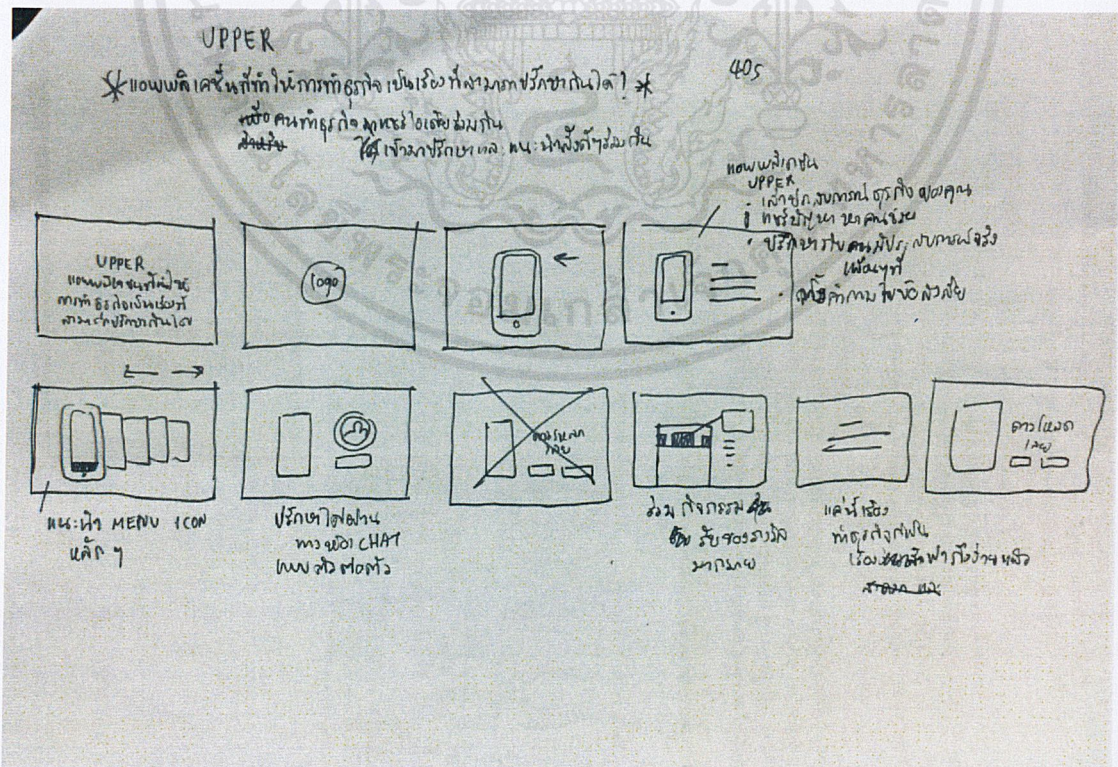 UPPER
40s
*แอพพลิเคชั่นที่ทำให้การทำธุรกิจ เป็นเรื่องที่สามารถปรึกษากันได้! *
คนทำธุรกิจ มาแชร์ไอเดียร่วมกัน
เข้ามาปรึกษาและแนะนำสิ่งดีๆร่วมกัน
แอพพลิเคชัน
UPPER
· เล่าประสบการณ์ ธุรกิจ ของคุณ
· แชร์ปัญหา หาคนช่วย
· ปรึกษากับคนมีประสบการณ์จริง
· ตั้งคำถามในข้อสงสัย
UPPER
แอพพลิเคชันที่ทำให้
การทำธุรกิจเป็นเรื่องที่
สามารถปรึกษากันได้
logo
แนะนำ MENU ICON
หลักๆ
ปรึกษาได้ผ่าน
ทางห้อง CHAT
แบบตัวต่อตัว
ดาวโหลด
เลย
ร่วมกิจกรรม
รับของรางวัล
มากมาย
แค่นี้เรื่อง
ทำธุรกิจก็เป็น
เรื่อง ง่ายแล้ว
ดาวโหลด
เลย